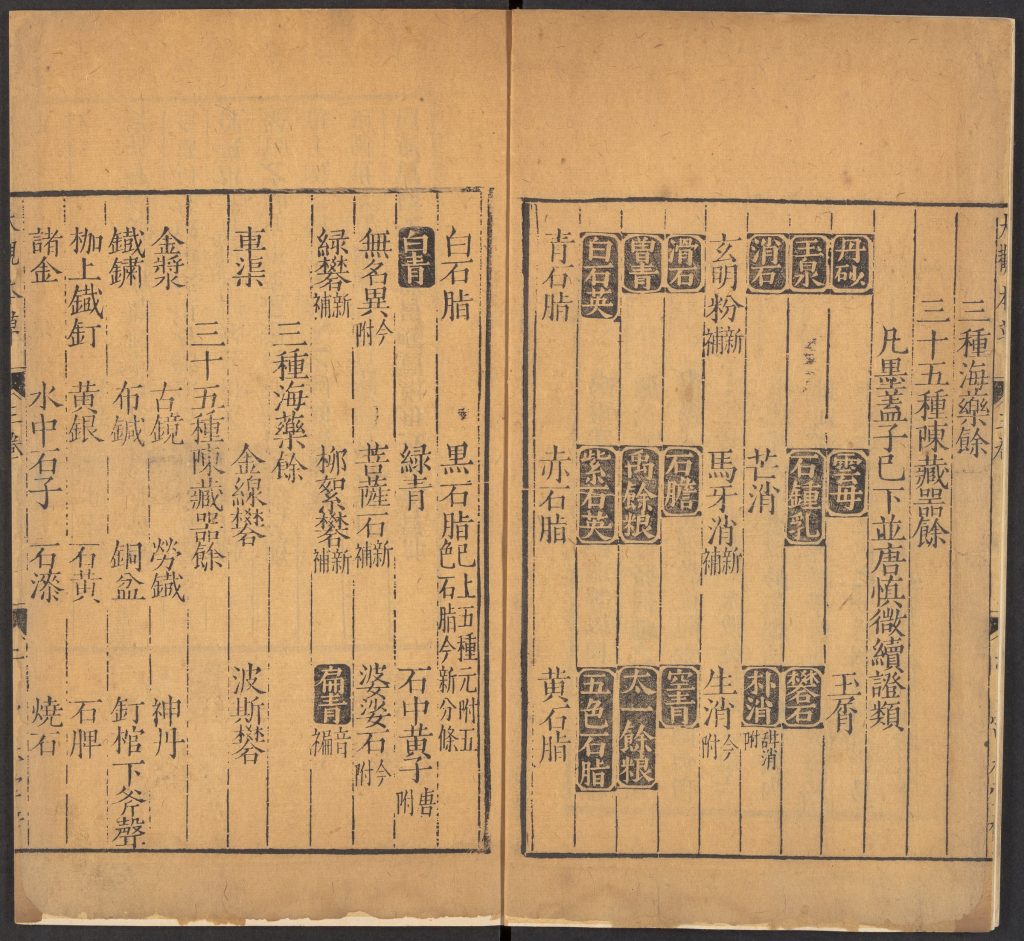 三種海藥餘
三十五種陳藏噐餘
凡墨蓋子已下並唐慎微續證類
丹砂 雲母 玉屑
玉泉 石鍾乳 礬石
消石 芒消 朴消甜消附
玄明粉新補 馬牙消新補 生消今附
滑石 石膽 空青
曽青 禹餘粮 太一餘粮
白石英 紫石英 五色石脂
青石脂 赤石脂 黄石脂
白石脂 黒石脂已上五種元附五色石脂今新分條
白青 緑青 石中黄子唐附
無名異今附 菩薩石新補 婆娑石今附
緑礬新補 柳絮礬新補 扁青音褊
車渠 金線礬 波斯礬
三種海藥餘
三十五種陳藏噐餘
金漿 古鏡 勞鐡 神丹
鐡鏽 布鍼 銅盆 釘棺下斧聲
枷上鐡釘 黄銀 石黄 石脾
諸金 水中石子 石漆 燒石